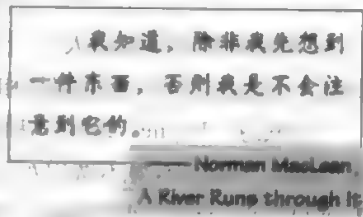 我知道，除非我先想到
一件东西，否则我是不会注
意到它的。
—— Norman MacLean,
A River Runs through It